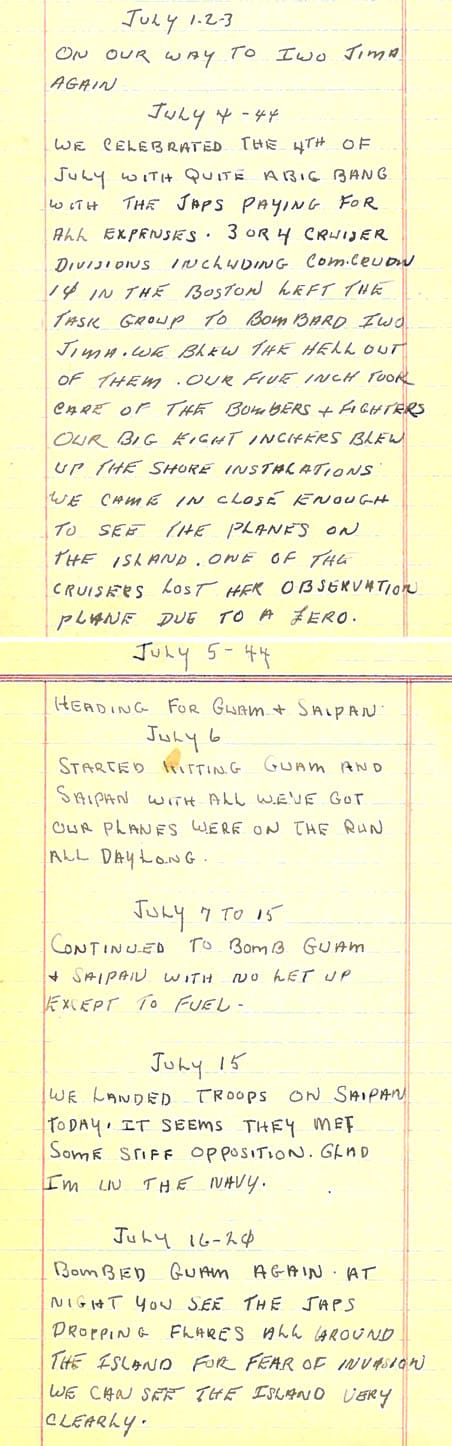 July 1-2-3
ON OUR WAY TO IWO JIMA
AGAIN
July 4-44
WE CELEBRATED THE 4TH OF
July WITH QUITE A BIG BANG
WITH THE JAPS PAYING FOR
ALL EXPENSES. 3 OR 4 CRUISER
DIVISIONS INCLUDING COM.CRUDIV
1Ø IN THE BOSTON LEFT THE
TASK GROUP TO BOMBARD IWO
JIMA. WE BLEW THE HELL OUT
OF THEM. OUR FIVE INCH TOOK
CARE OF THE BOMBERS + FIGHTERS
OUR BIG EIGHT INCHERS BLEW
UP THE SHORE INSTALATIONS
WE CAME IN CLOSE ENOUGH
TO SEE THE PLANES ON
THE ISLAND. ONE OF THE
CRUISERS LOST HER OBSERVATION
PLANE DUE TO A ZERO.
July 5-44
HEADING FOR GUAM + SAIPAN
July 6
STARTED HITTING GUAM AND
SAIPAN WITH ALL WE'VE GOT
OUR PLANES WERE ON THE RUN
ALL DAY LONG.
July 7 TO 15
CONTINUED TO BOMB GUAM
+ SAIPAN WITH NO LET UP
EXCEPT TO FUEL-
July 15
WE LANDED TROOPS ON SAIPAN
TODAY. IT SEEMS THEY MET
SOME STIFF OPPOSITION. GLAD
IM IN THE NAVY.
July 16-2Ø
BOMBED GUAM AGAIN. AT
NIGHT YOU SEE THE JAPS
DROPPING FLARES ALL AROUND
THE ISLAND FOR FEAR OF INVASION
WE CAN SEE THE ISLAND VERY
CLEARLY.